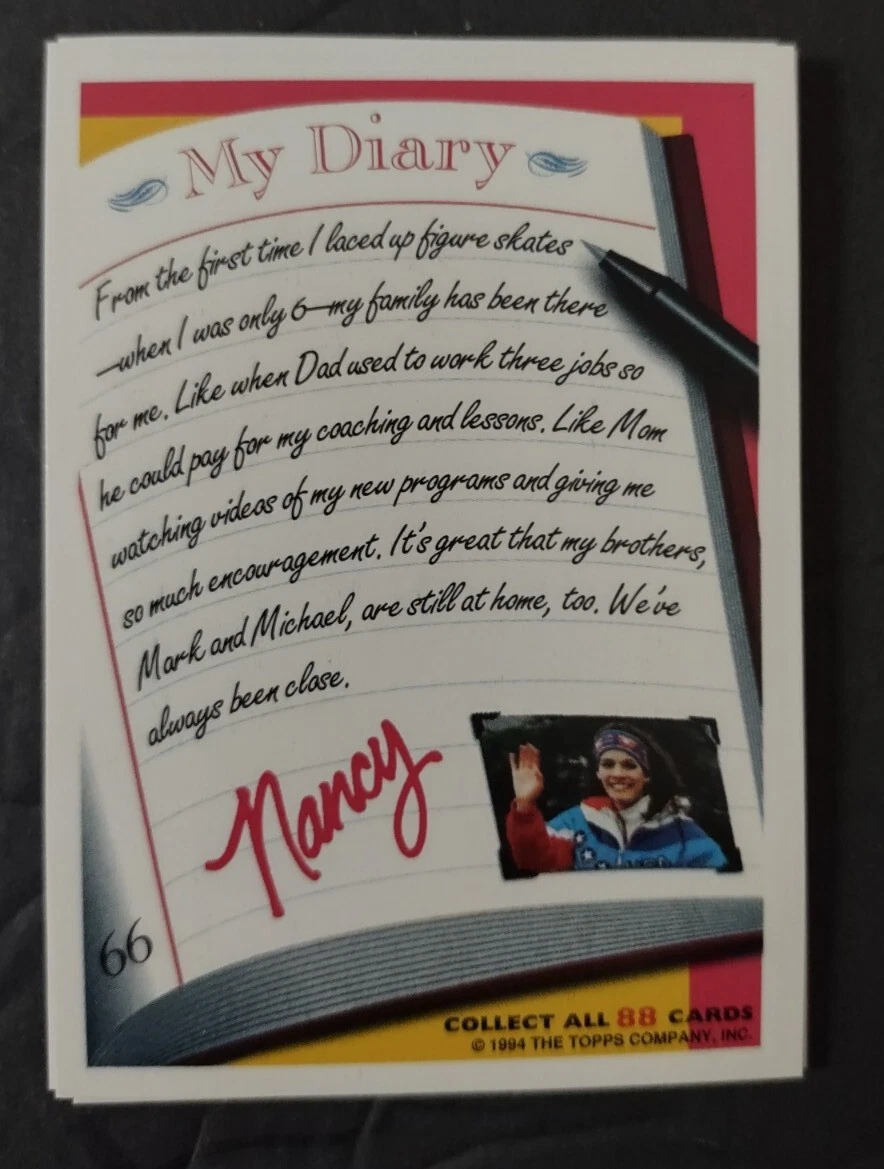 My Diary
From the first time I laced up figure skates
—when I was only 6—my family has been there
for me. Like when Dad used to work three jobs so
he could pay for my coaching and lessons. Like Mom
watching videos of my new programs and giving me
so much encouragement. It's great that my brothers,
Mark and Michael, are still at home, too. We've
always been close.
Nancy
66
COLLECT ALL 88 CARDS
© 1994 THE TOPPS COMPANY, INC.